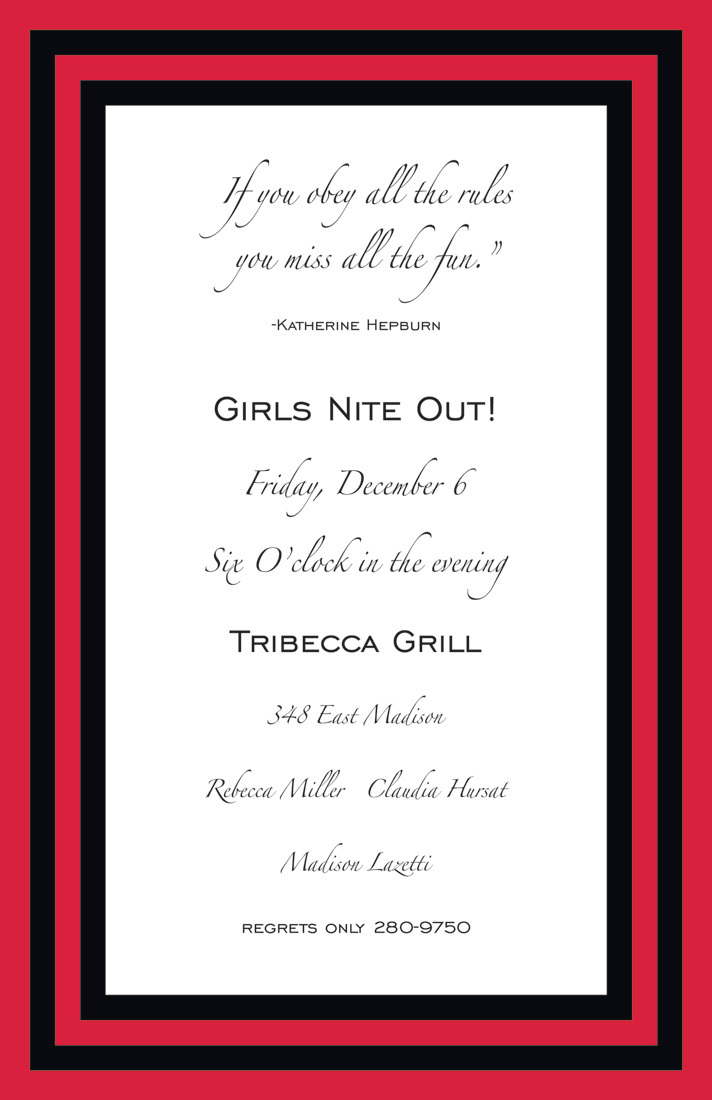 If you obey all the rules
you miss all the fun.”
-Katherine Hepburn
Girls Nite Out!
Friday, December 6
Six O’clock in the evening
Tribecca Grill
348 East Madison
Rebecca Miller Claudia Hursat
Madison Lazetti
regrets only 280-9750